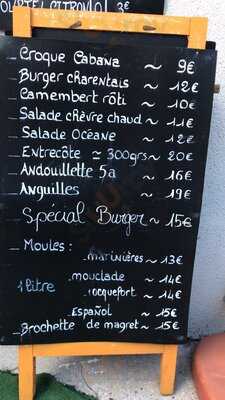 3€
_Croque Cabana ~ 9€
_Burger charentais ~ 12€
_Camembert rôti ~ 10€
_Salade chèvre chaud ~ 11€
_Salade Océane ~ 12€
_Entrecôte ≃ 300grs ~ 20€
_Andouillette 5a ~ 16€
_Anguilles ~ 19€
_Spécial Burger ~ 15€
_Moules :
_marinières ~ 13€
_mouclade ~ 14€
1 litre
_rocquefort ~ 14€
_Español ~ 15€
_Brochette de magret ~ 15€